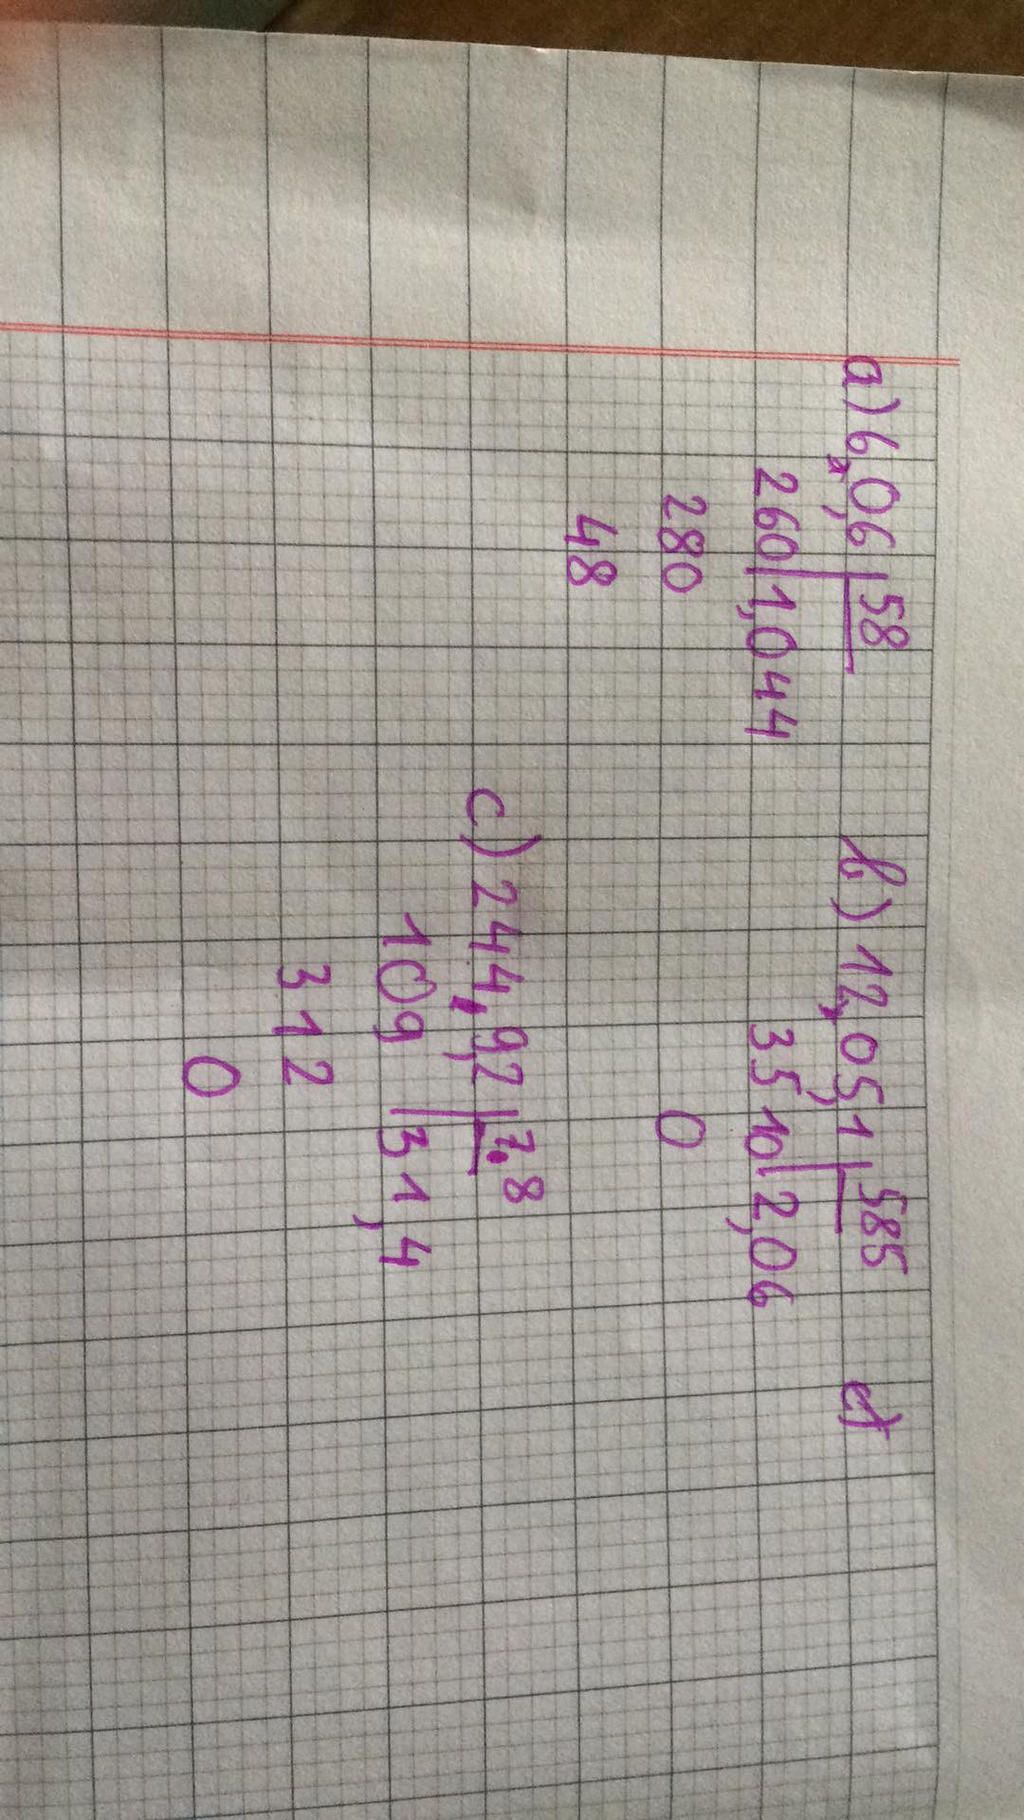 a) 6,06 58
260 1,044
280
48
b) 12,051 585
3510 2,06
0
c) 244,92 7,8
109 31,4
312
0